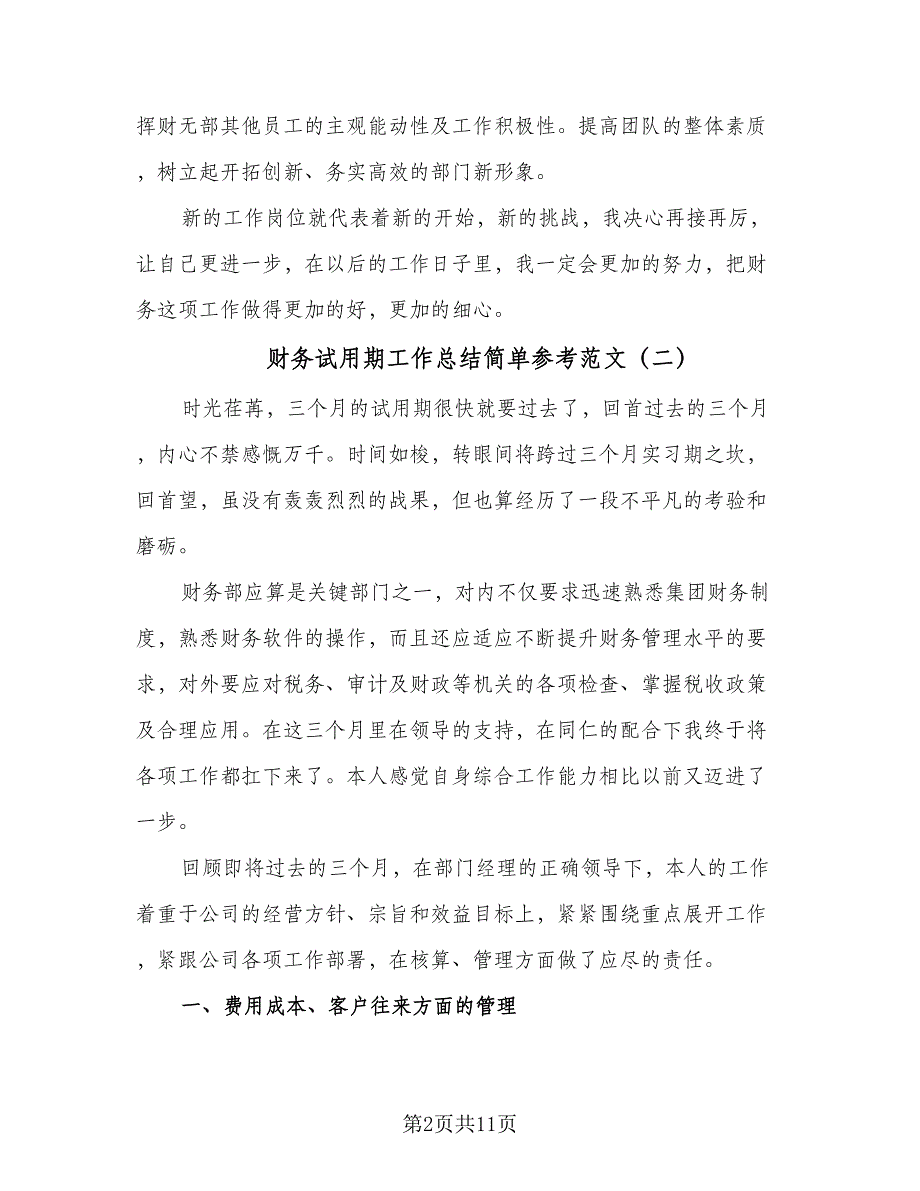 挥财无部其他员工的主观能动性及工作积极性。提高团队的整体素质
，树立起开拓创新、务实高效的部门新形象。
新的工作岗位就代表着新的开始，新的挑战，我决心再接再厉，
让自己更进一步，在以后的工作日子里，我一定会更加的努力，把财
务这项工作做得更加的好，更加的细心。
财务试用期工作总结简单参考范文（二）
时光荏苒，三个月的试用期很快就要过去了，回首过去的三个月
，内心不禁感慨万千。时间如梭，转眼间将跨过三个月实习期之坎，
回首望，虽没有轰轰烈烈的战果，但也算经历了一段不平凡的考验和
磨砺。
财务部应算是关键部门之一，对内不仅要求迅速熟悉集团财务制
度，熟悉财务软件的操作，而且还应适应不断提升财务管理水平的要
求，对外要应对税务、审计及财政等机关的各项检查、掌握税收政策
及合理应用。在这三个月里在领导的支持，在同仁的配合下我终于将
各项工作都扛下来了。本人感觉自身综合工作能力相比以前又迈进了
一步。
回顾即将过去的三个月，在部门经理的正确领导下，本人的工作
着重于公司的经营方针、宗旨和效益目标上，紧紧围绕重点展开工作
，紧跟公司各项工作部署，在核算、管理方面做了应尽的责任。
一、费用成本、客户往来方面的管理
第2页共11页